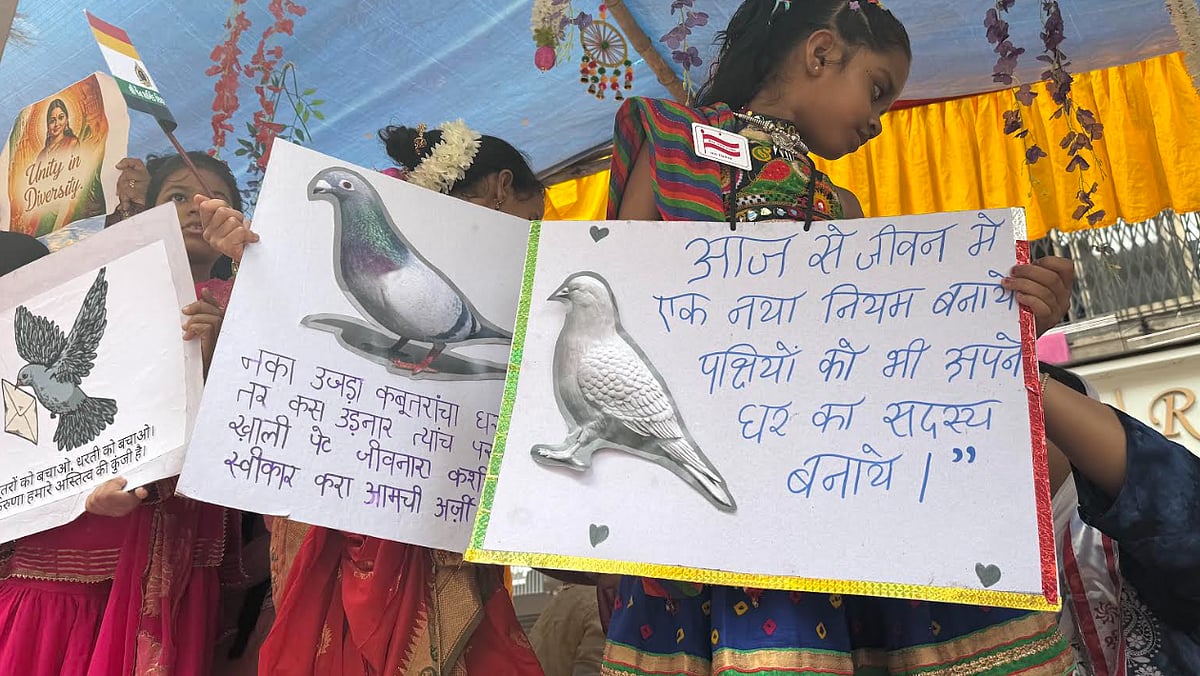 Unity in
Diversity.
तरों को बचाओ, धरती को बचाओ।
रुणा हमारे अस्तित्व की कुंजी है।
नका उजडा कबूतरांचा घर
तर कसं उड़नार त्यांच
खाली पेट जीवनारा कशी
स्वीकार करा आमची अर्ज़ी
आज से जीवन में
एक नया नियम बनाये
पक्षियों को भी अपने
घर का सदस्य
बनाये।”
R